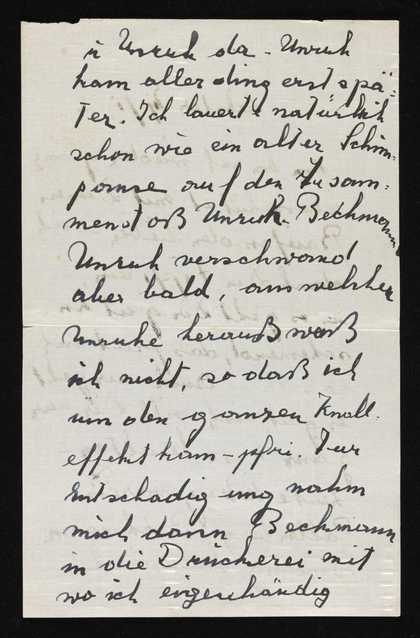 u Unruh da – Unruh
kam allerding erst spä-
ter. Ich lauerte natürlich
schon wie ein alter Schim-
panse auf den Zusam-
menstoß Unruh-Beckmann
Unruh verschwand
aber bald, aus welcher
Unruhe herauß weß
ich nicht, so daß ich
um den ganzen Knall
effekt kam – pfui. Zur
Entschädigung nahm
mich dann Beckmann
in die Druckerei mit
wo ich eigenhändig